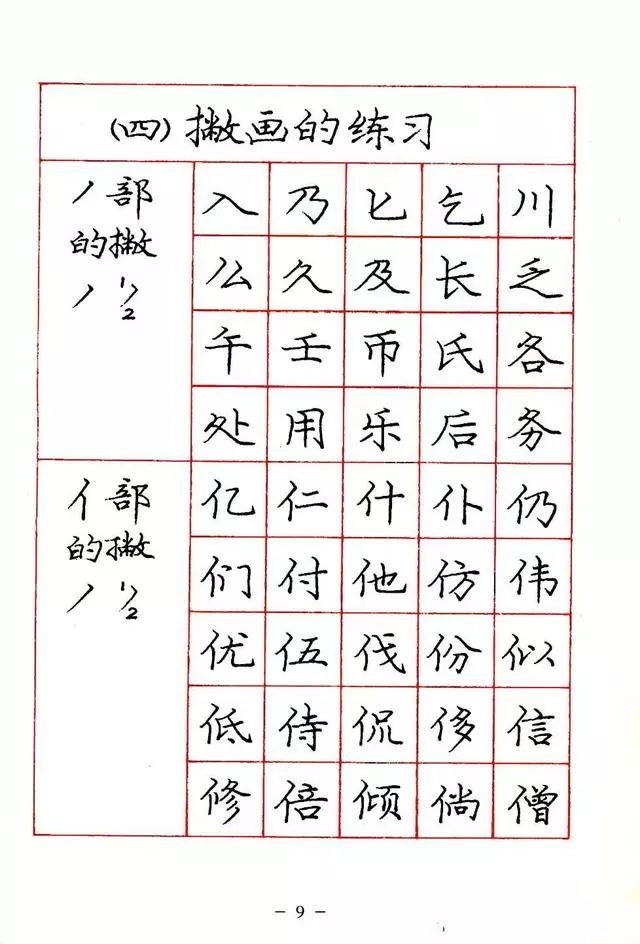 (四)撇画的练习
丿部
的撇
丿 1/2
入 乃 匕 乞 川
么 久 及 长 乏
午 壬 币 氏 各
处 用 乐 后 务
亻部
的撇
丿 1/2
亿 仁 什 仆 仍
们 付 他 仿 伟
优 伍 伐 份 似
低 侍 侃 侈 信
修 倍 倾 倘 僧
- 9 -